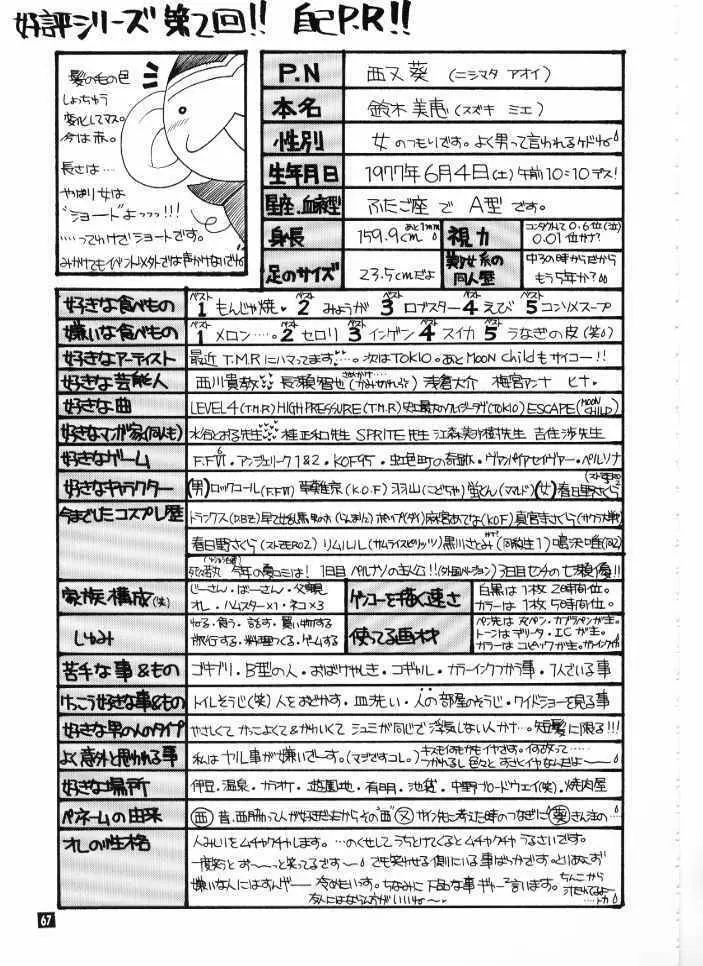 好評シリーズ第2回!! 自己P.R!!
髪の毛の色
しょっちゅう
変化してマス。
今は赤。
長さは…
やはり女は
"ショート"よっっっ!!!
……ってわけでショートです。
みかけてもイベント×外では声かけないでね
P.N 西又葵(ニシマタ アオイ)
本名 鈴木美恵(スズキ ミエ)
性別 女のつもりです。よく男って言われるケドね
生年月日 1977年6月4日(土)午前10:10デス!
星座・血液型 ふたご座でA型です。
身長 159.9cm あと1mm
視力 コンタクトで0.6位(泣) 0.01位かナ?
足のサイズ 23.5cmだよ
美少女系の同人歴 中3の時からだから もう5年か?
好きな食べもの ベスト1もんじゃ焼 ベスト2みょうが ベスト3ロブスター ベスト4えび ベスト5コンソメスープ
嫌いな食べもの ベスト1メロン…。ベスト2セロリ ベスト3インゲン ベスト4スイカ ベスト5うなぎの皮(笑)
好きなアーティスト 最近T.M.Rにハマってます…。次はTOKIO。あとMOON Childもサイコー!!
好きな芸能人 西川貴教 長瀬智也 浅倉大介 梅宮アンナ ヒナ
好きな曲 LEVEL4(T.M.R)HIGH PRESSURE(T.M.R) (TOKIO)ESCAPE(MOON CHILD)
好きなマンガ家(同人も) 水谷とおる先生 桂正和先生 SPRITE先生 江森美沙樹先生 吉住渉先生
好きなゲーム F.FⅥ・アンジェリーク1&2・KOF95・虹色町の奇跡・ヴァンパイアセイヴァー・ペルソナ
好きなキャラクター (男)ロックコール(F.FⅥ)草薙京(K.O.F)羽山(こどちゃ)蛍どん(ママレド)(女)春日野さくら(ストZERO2)
今までしたコスプレ歴 トランクス(DBZ)早乙女乱馬 男のホ(らんま½)ポップ(ダイ)麻宮アテナ(KOF)真宮寺さくら(サクラ大戦)
春日野さくら(ストZERO2)リムルル(サムライスピリッツ)黒川さとみ(同級生1)鳴沢唯(同2)
今年の夏コミは! 1日目ペルソナの主人公!!(外国バージョン)3日目センチの七瀬優!!
家族構成(笑) じーさん・ばーさん・父親母親
オレ・ハムスター×1・ネコ×3
ゲンコーを描く速さ 白黒は1枚2時間位。
カラーは1枚5時間位。
しゅみ ねる・食う・話す・買い物する
旅行する・料理つくる・ゲームする
使ってる画材 ペン先は丸ペン・カブラペンが主。
トーンはデリータ・ICが主。
カラーはコピックが主。カラーインクも
苦手な事&もの ゴキブリ・B型の人・おばけやしき・コギャル・カラーインクつかう事・1人でいる事
けっこう好きな事&もの トイレそうじ(笑)人をおどかす・皿洗い・人の部屋のそうじ・ワイドショーを見る事
好きな男の人のタイプ やさしくてかっこよくてかわいくてシュミが同じで浮気しない人かナ…。短髪に限る!!!
よく意外と思われる事 私はヤル事が嫌いでーす。(マジっすコレ。)
好きな場所 伊豆・温泉・カラオケ・遊園地・有明・池袋・中野ブロードウェイ(笑)・焼肉屋
ペンネームの由来 (西)昔、西脇って人が好きだったからその"西"(又)サイン先に考えた時のつなぎに(葵)さん活の…
オレの性格 人みしりをムチャクチャします。…のくせしてうちとけてくるとムチャクチャうるさいです。
一度笑うとお~~っと笑ってるです~ でも笑わせる側にいる事ばっかです。とりあえず
嫌いな人にはすんげー冷めてます。ちなみに下品な事ギャーギャー言います。
友人にはならん方がいいね~
67